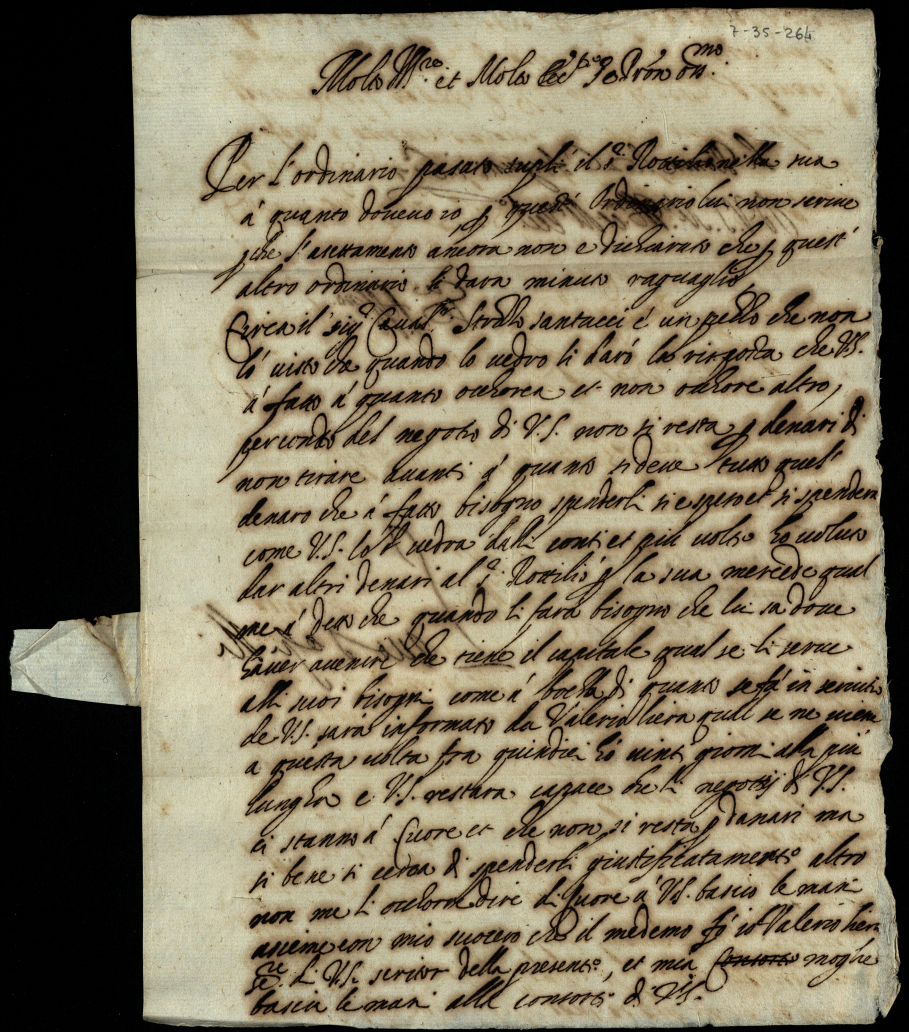 7-35-264
Molto Ill.re et Molto Ecc.te Sr Prōn oss.mo
Per l'ordinario pasato suplì il sr. Rottilio nella sua
á quanto dovevo io, p questi Ordinario lui non scrive
p che l'asettamento áncora non e dichiarato che p quest'
altro ordinario li dara minuto raguaglio
Circa il sigr Caval.re Strodlo santucci é un pezzo che non
lo visto che quando lo vedro li daró la risposta che V.S.
á fatto á quanto ochorea et non ochore altro,
per conto del negotio di V.S. non si resta p denari di
non tirare avanti á quanto si deve tutto quel
denaro che á fatto bisogno spenderli si e speso et si spendera
come V.S. lo vedra dalli conti et piu volte ho voluto
dar altri denari al sr. Rottilio p la sua mercede qual
me á detto che quando li fara bisogno che lui sa dove
haver avenire che tiene il capitale qual se li serve
alli suoi bisogni come á bocha di quanto se fa in servitio
de V.S. sará informato da Valerio hiera qual se ne viene
a questa volta fra quindici hó vinti giorni alla piu
lungha e V.S. restara capace che li negotij di V.S.
ci stanno á Cuore et che non si resta p danari ma
si bene si cerca di spenderli giustificatamente altro
non me li ochore dire di Cuore á V.S. bascio le mani
assieme con mio suocero che il medemo fo io Valerio hiera
se.re di V.S. scritor della presente, et mia moglie
bascia le mani alla consorte di V.S.